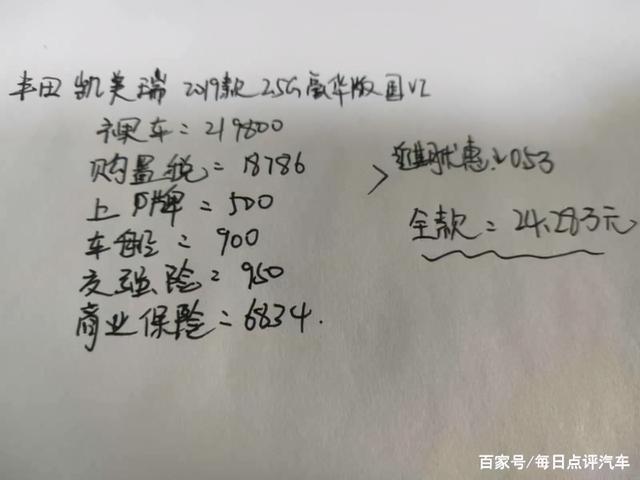 丰田 凯美瑞 2019款 2.5G 豪华版 国VI
裸车=219800
购置税=18786
上户牌=500
车船=900
交强险=950
商业保险=6834.
近期优惠.2053
全款=24.283元
百家号/每日点评汽车